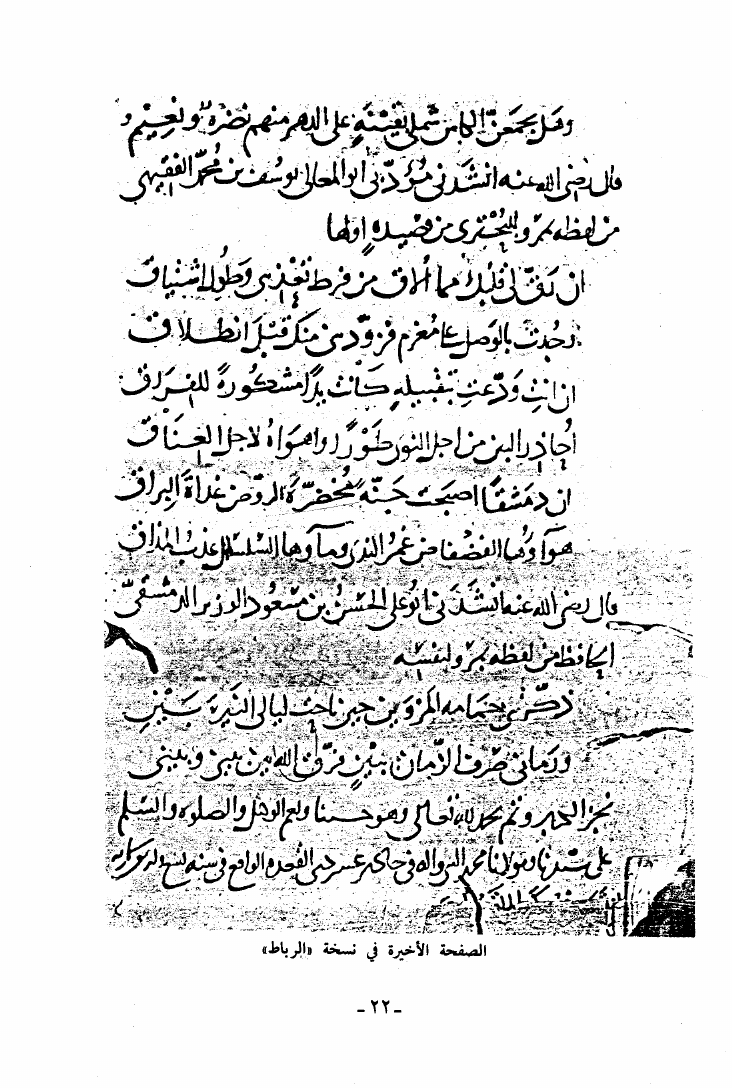 وهل يجمعنّ الكاس شملي بفتية على الدهر منهم نضرة ونعيم
قال رضي الله عنه انشدني مؤدبي ابو المعالي يوسف بن محمد الفقيهي
من لفظه بمرو للبحتري من قصيدة اولها
ان رقّ لي قلبك مما الاق من فرط تعذيبي وطول اشتياق
وجدت بالوصل على مغرم فزوّديني منك قبل انطلاق
ان انت ودّعت بتقبيلة كانت يدًا مشكورة للفراق
احاذر البين من اجل النوى طورًا واهواه لاجل العناق
ان دمشقًا اصبحت جنّة مخضرّة الروض غداة البراق
هواؤها الفضفاض غمر الندى وماؤها السلسل عذب المذاق
قال رضي الله عنه انشدني ابو علي الحسن بن مسعود الوزير الدمشقيّ
الحافظ من لفظه بمرو لنفسه
ذكّرتني حمامة المروين حين ناحت ليالي النيربين
ورماني صرف الزمان ببين فرّق الله بين بيني وبيني
نجز الخبر وتم بحمد الله تعالى وهو حسبنا ونعم الوكيل والصلوة والسلم
على سيدنا ومولانا محمد النبي واله في حادي عشر ذي القعده الواقع في سنه تسع
الصفحة الأخيرة في نسخة «الرباط»
ـ ٢٢ ـ